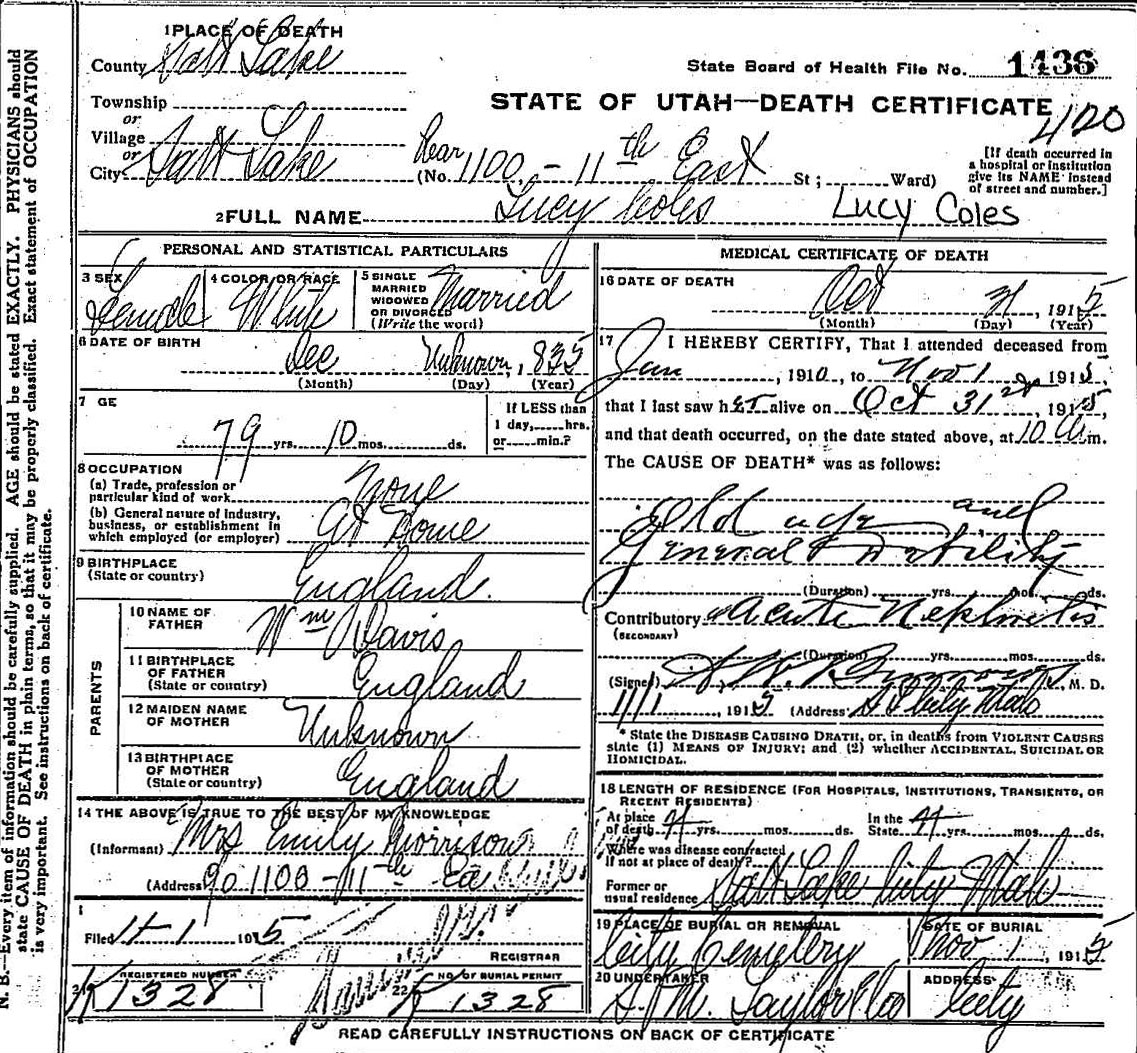 N. B.—Every item of information should be carefully supplied. AGE should be stated EXACTLY. PHYSICIANS should
state CAUSE OF DEATH in plain terms, so that it may be properly classified. Exact statement of OCCUPATION
is very important. See instructions on back of certificate.
1 PLACE OF DEATH
County Salt Lake
State Board of Health File No. 1436
Township
STATE OF UTAH—DEATH CERTIFICATE
420
or
Village
or
City Salt Lake (No. Rear 1100 - 11th East St; Ward)
[If death occurred in
a hospital or institution
give its NAME instead
of street and number.]
2 FULL NAME Lucy Coles Lucy Coles
PERSONAL AND STATISTICAL PARTICULARS
3 SEX Female
4 COLOR OR RACE White
5 SINGLE
MARRIED
WIDOWED
OR DIVORCED
(Write the word)
Married
6 DATE OF BIRTH
Dec Unknown, 1835
(Month) (Day) (Year)
7 GE
79 yrs. 10 mos. ds.
If LESS than
1 day, hrs.
or min.?
8 OCCUPATION
(a) Trade, profession or
particular kind of work None
(b) General nature of industry,
business, or establishment in
which employed (or employer) At Home
9 BIRTHPLACE
(State or country) England.
PARENTS
10 NAME OF
FATHER Wm Davis
11 BIRTHPLACE
OF FATHER
(State or country) England
12 MAIDEN NAME
OF MOTHER Unknown
13 BIRTHPLACE
OF MOTHER
(State or country) England
14 THE ABOVE IS TRUE TO THE BEST OF MY KNOWLEDGE
(Informant) Mrs Emily Morrison
(Address 1100 - 11th Ea
Filed 11-1 1915
REGISTRAR
REGISTERED NUMBER
1328
22 NO. OF BURIAL PERMIT
1328
MEDICAL CERTIFICATE OF DEATH
16 DATE OF DEATH
Oct 31, 1915
(Month) (Day) (Year)
17 I HEREBY CERTIFY, That I attended deceased from
Jan, 1910, to Nov 1 1915,
that I last saw her alive on Oct 31, 1915,
and that death occurred, on the date stated above, at 10 a.m.
The CAUSE OF DEATH* was as follows:
Old age and
General Debility
(Duration) yrs. mos. ds.
Contributory Acute Nephritis
(SECONDARY)
(Duration) yrs. mos. ds.
(Signed) M. D.
11/1, 1915 (Address) S L City Utah
* State the DISEASE CAUSING DEATH, or, in deaths from VIOLENT CAUSES
state (1) MEANS OF INJURY; and (2) whether ACCIDENTAL, SUICIDAL OR
HOMICIDAL.
18 LENGTH OF RESIDENCE (FOR HOSPITALS, INSTITUTIONS, TRANSIENTS, OR
RECENT RESIDENTS)
At place
of death yrs. mos. ds.
In the
State yrs. mos. ds.
Where was disease contracted
if not at place of death?
Former or
usual residence Salt Lake City Utah
19 PLACE OF BURIAL OR REMOVAL
City Cemetery
DATE OF BURIAL
Nov 1, 1915
20 UNDERTAKER
S. M. Taylor & Co
ADDRESS
City
READ CAREFULLY INSTRUCTIONS ON BACK OF CERTIFICATE